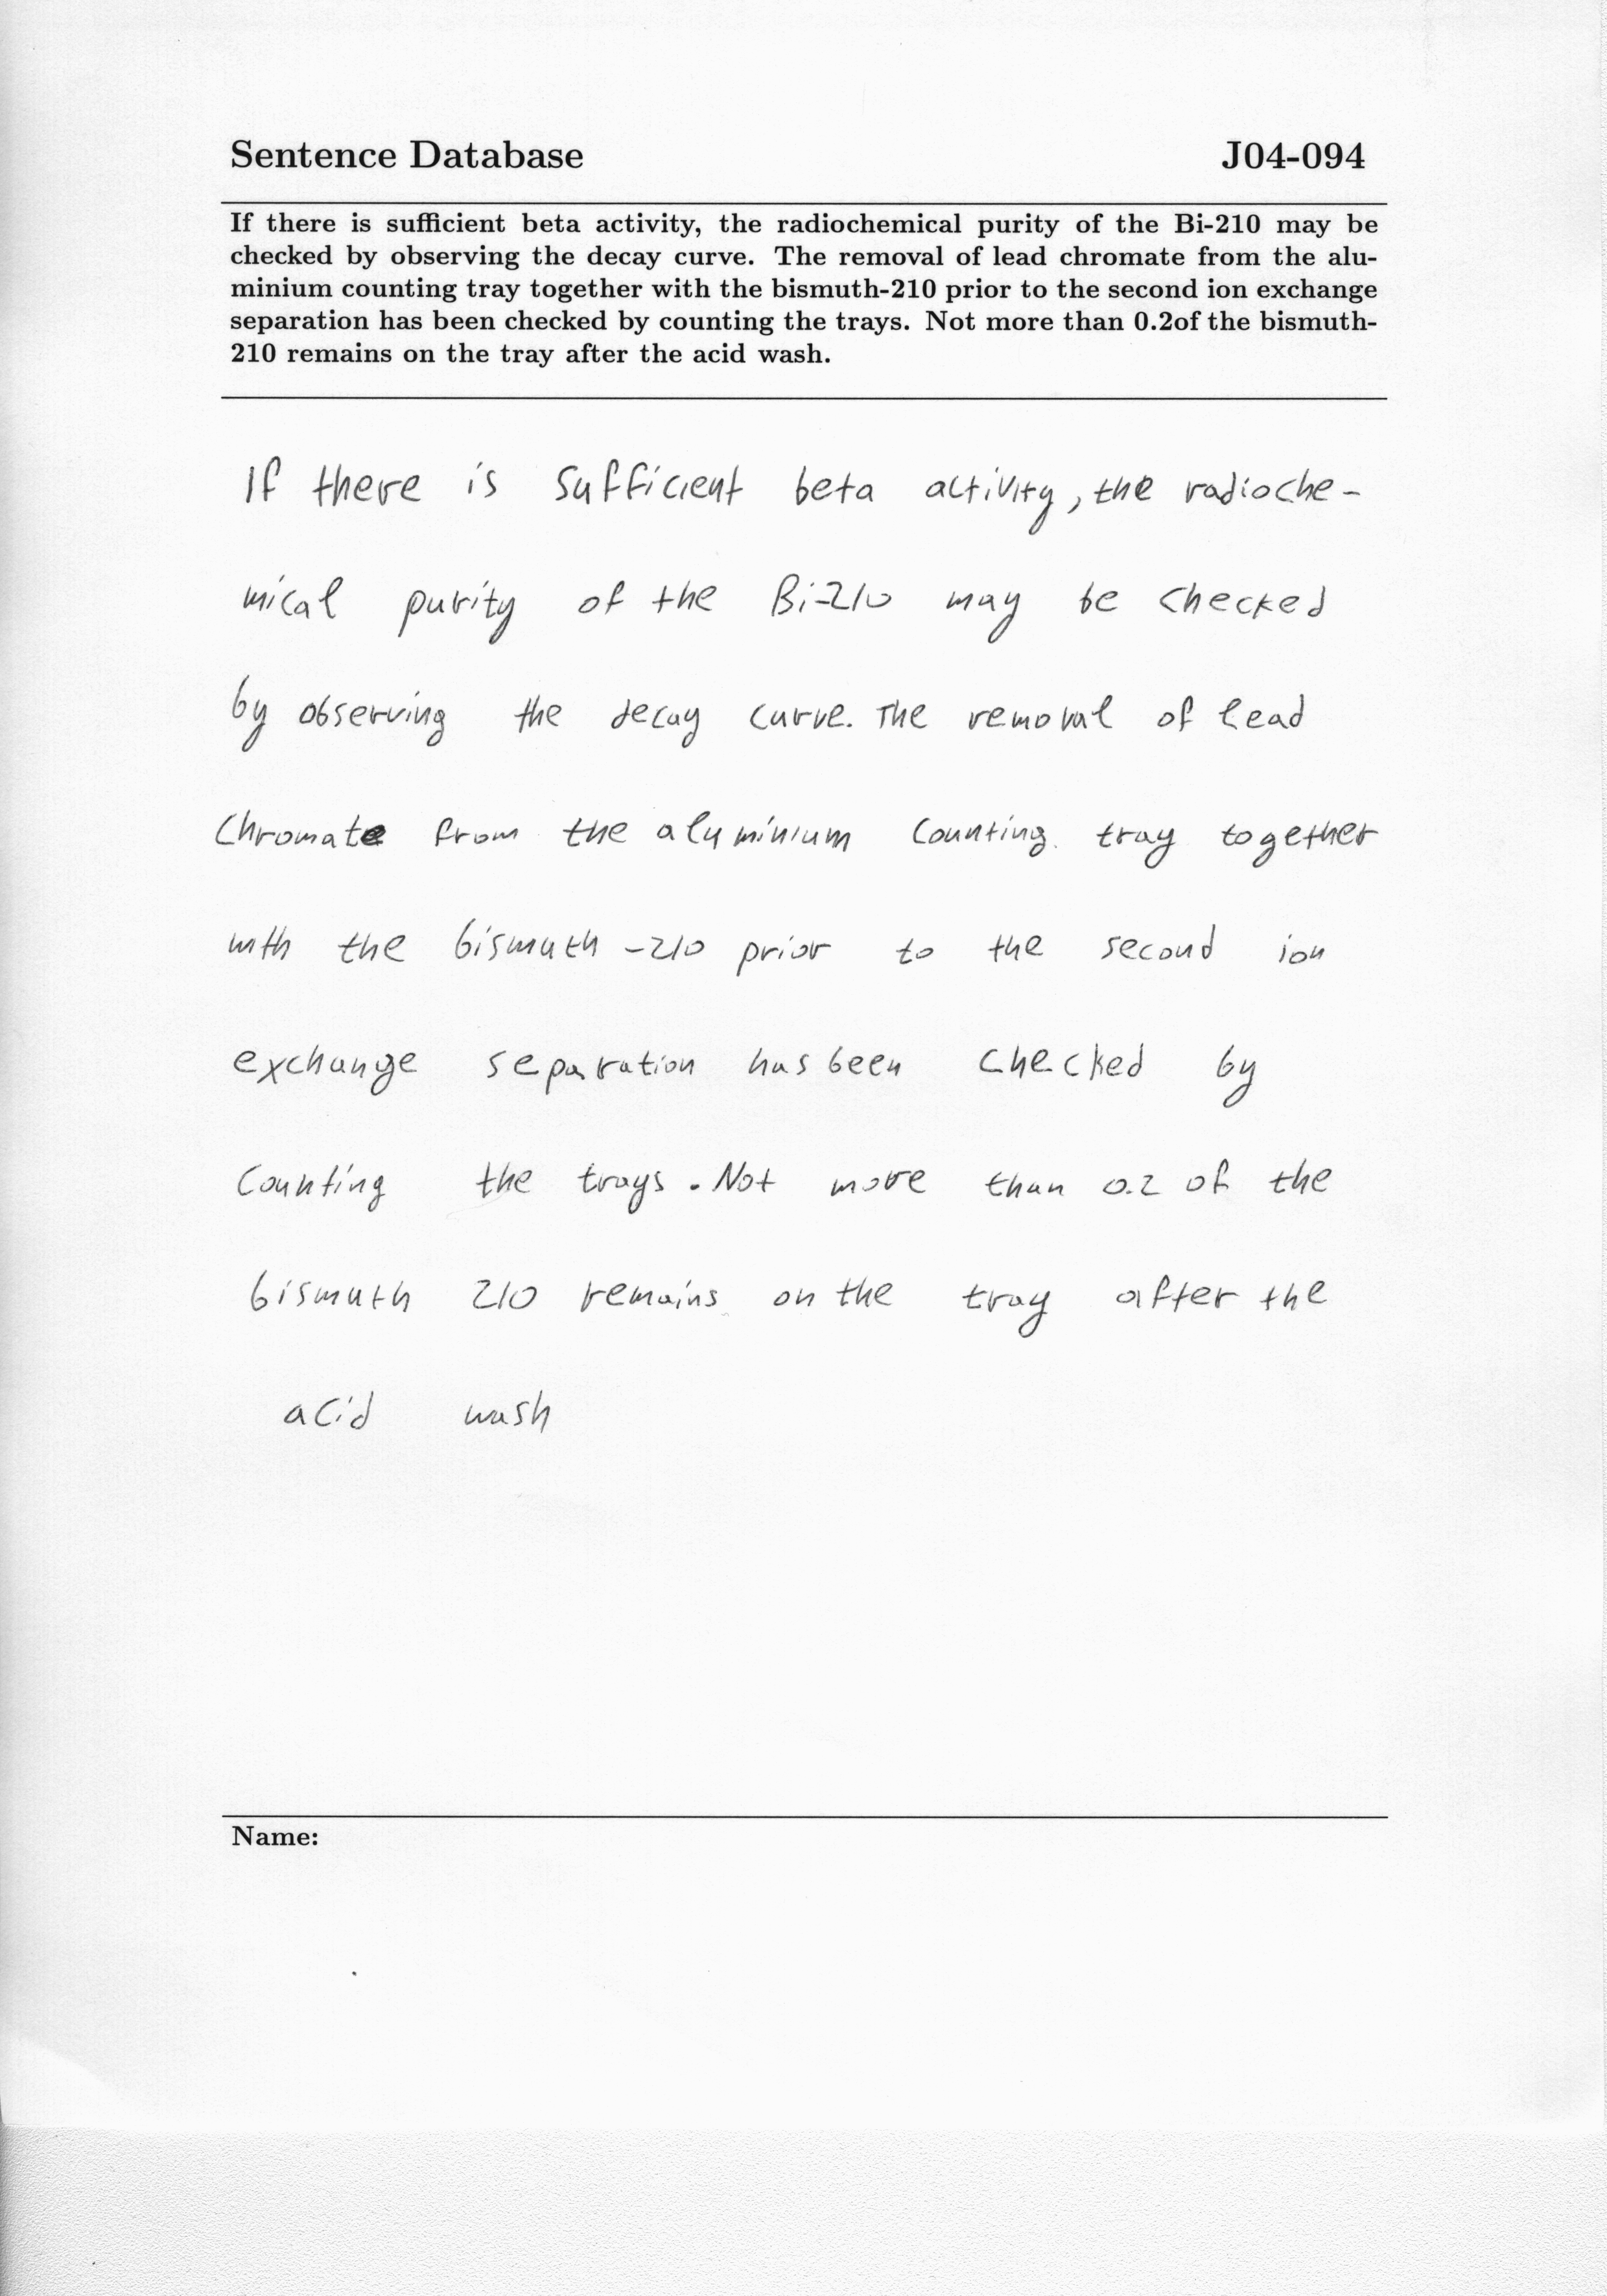 Sentence Database J04-094
If there is sufficient beta activity, the radiochemical purity of the Bi-210 may be
checked by observing the decay curve. The removal of lead chromate from the alu-
minium counting tray together with the bismuth-210 prior to the second ion exchange
separation has been checked by counting the trays. Not more than 0.2of the bismuth-
210 remains on the tray after the acid wash.
If there is sufficient beta activity, the radioche-
mical purity of the Bi-210 may be checked
by observing the decay curve. The removal of lead
chromate from the aluminium counting tray together
with the bismuth -210 prior to the second ion
exchange separation has been checked by
counting the trays. Not more than 0.2 of the
bismuth 210 remains on the tray after the
acid wash
Name: